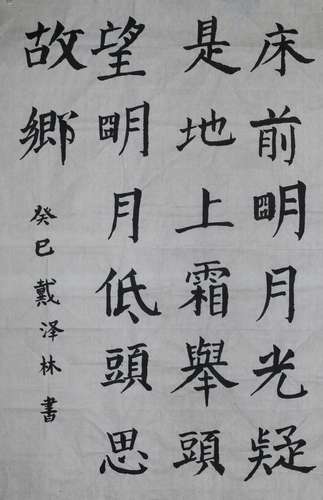 床前明月光疑
是地上霜舉頭
望明月低頭思
故鄉
癸巳戴泽林書